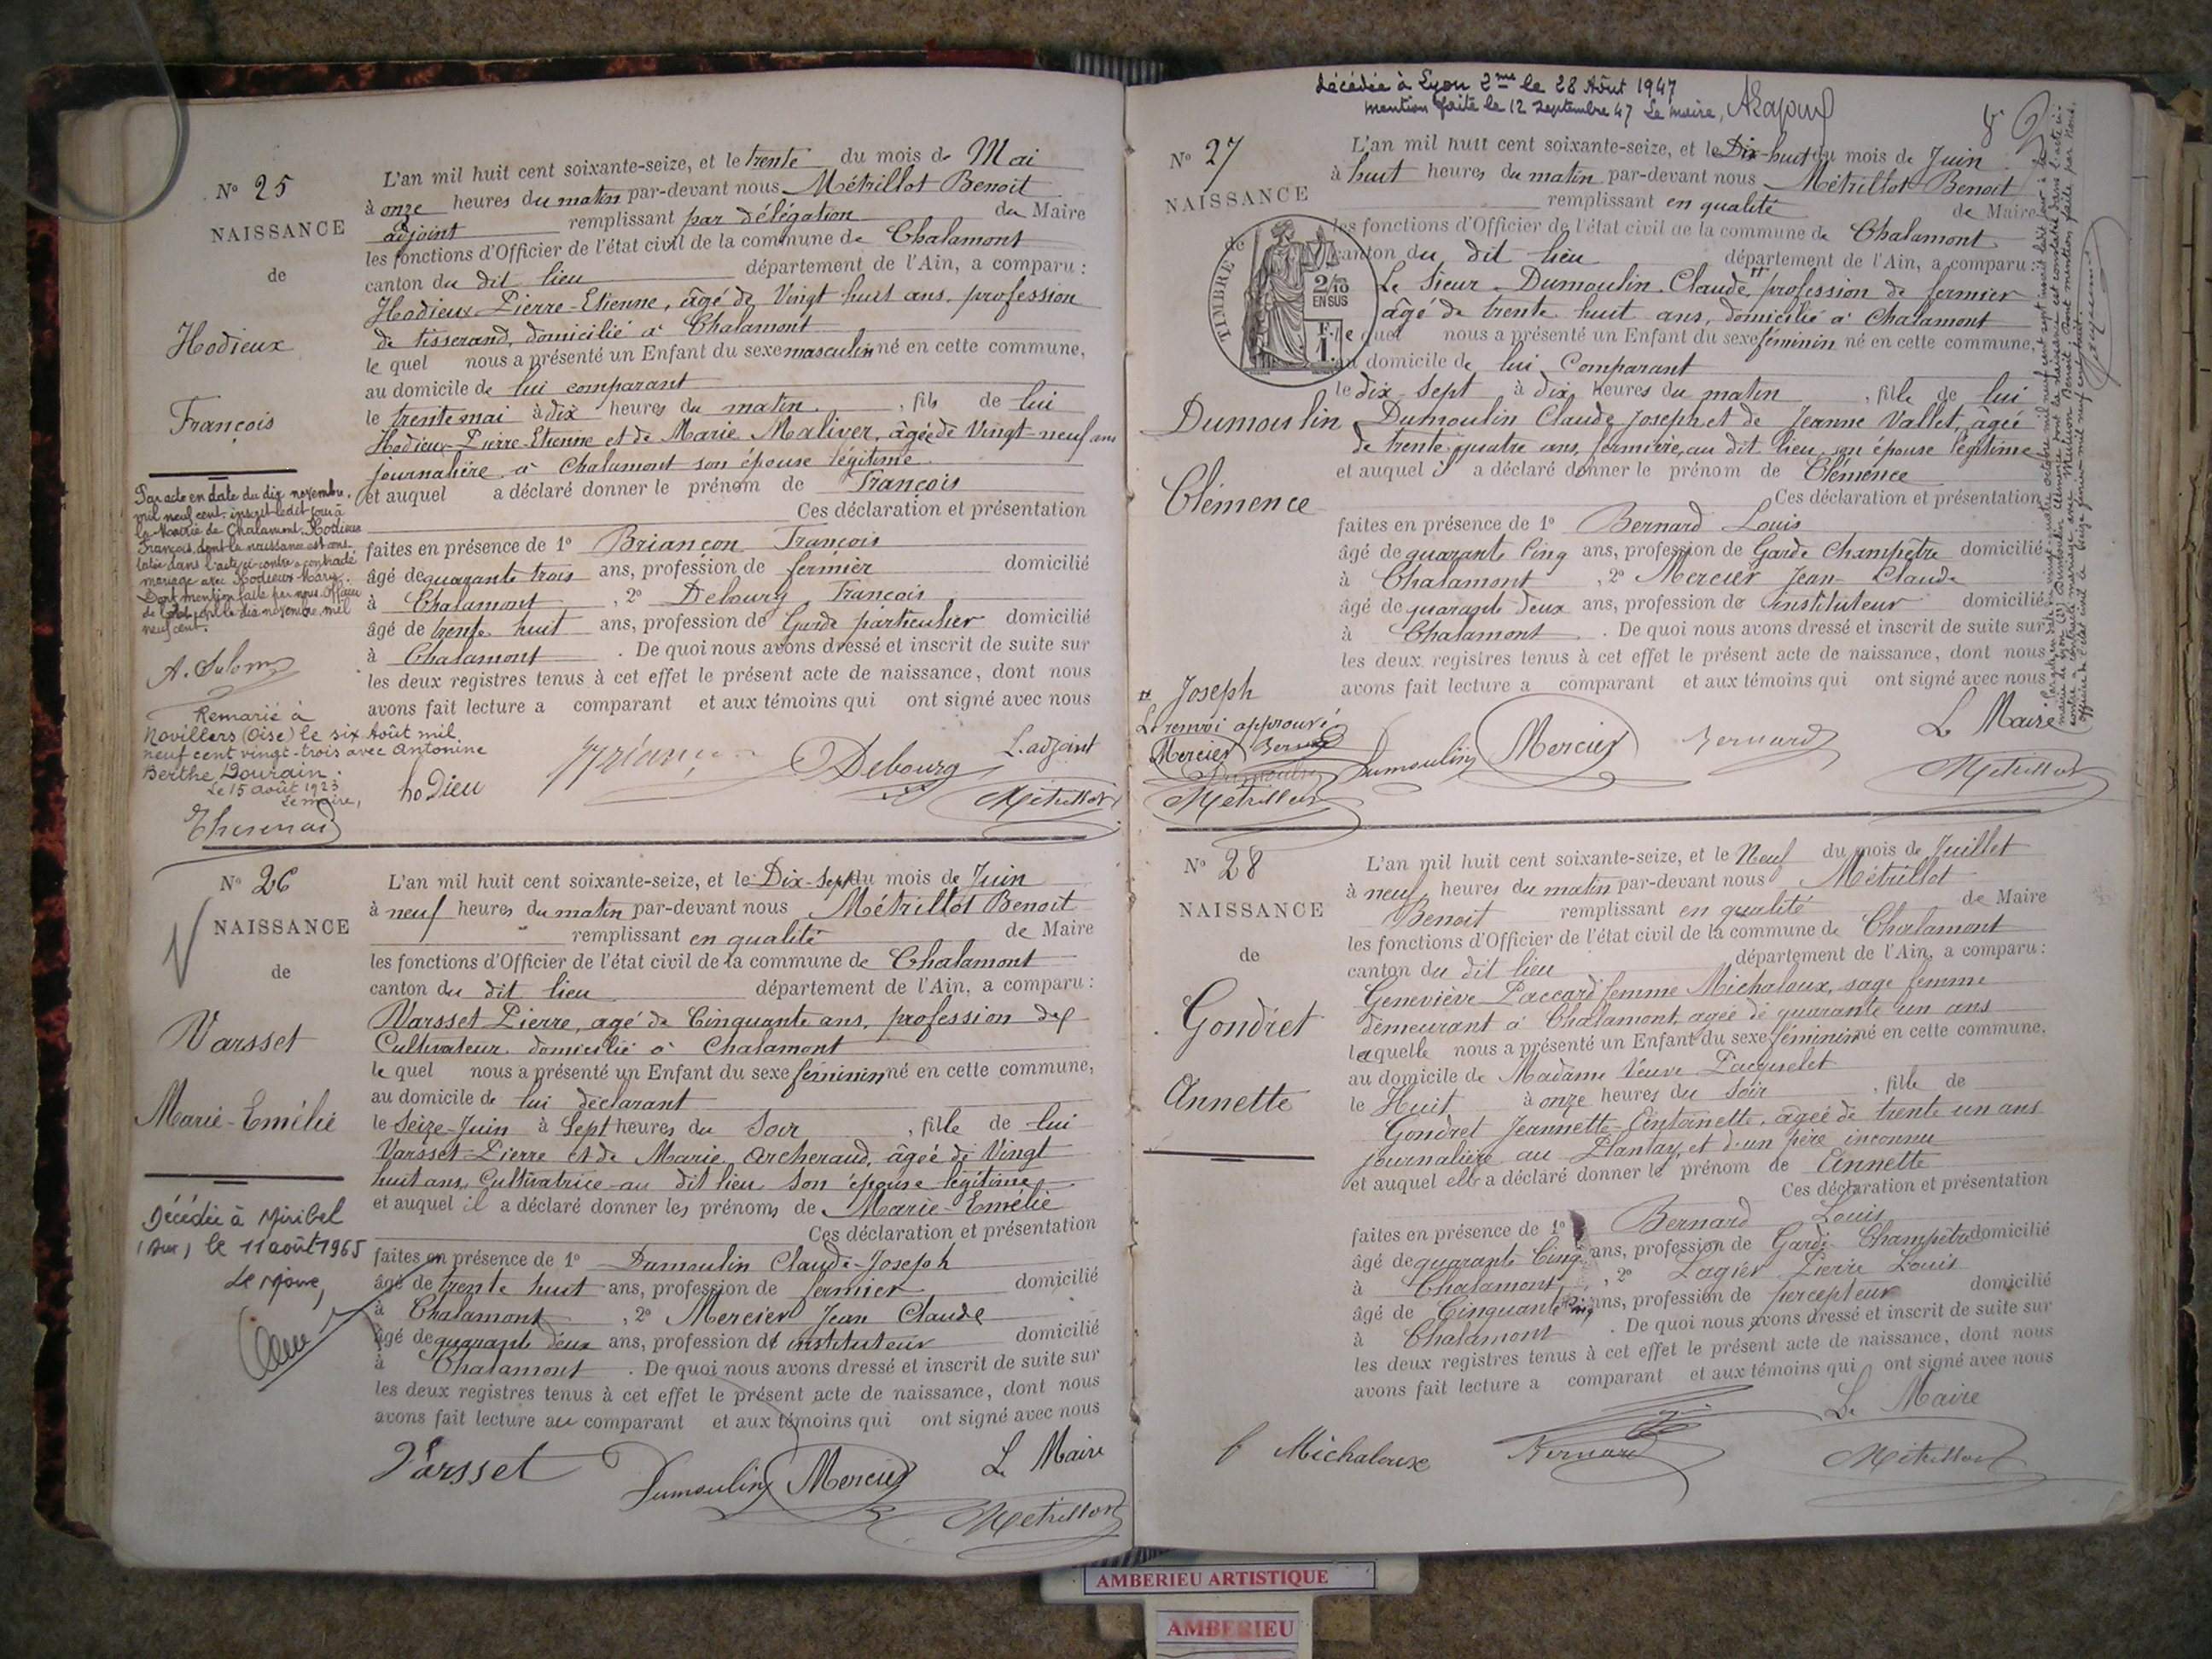 N° 25
NAISSANCE
de
Hodieux
François
L'an mil huit cent soixante-seize, et le trente du mois de Mai
à onze heures du matin par-devant nous Métrillot Benoit
adjoint remplissant par délégation du Maire
les fonctions d'Officier de l'état civil de la commune de Chalamont
canton du dit lieu département de l'Ain, a comparu :
Hodieux Pierre-Etienne, âgé de Vingt huit ans, profession
de tisserand, domicilié à Chalamont
le quel nous a présenté un Enfant du sexe masculin né en cette commune,
au domicile de lui comparant
le trente mai à dix heures du matin, fils de lui
Hodieux Pierre-Etienne et de Marie Maliver, âgée de Vingt-neuf ans
journalière à Chalamont son épouse légitime
et auquel a déclaré donner le prénom de François
Ces déclaration et présentation
faites en présence de 1° Briançon François
âgé de quarante trois ans, profession de fermier domicilié
à Chalamont, 2° Debourg François
âgé de trente huit ans, profession de Garde particulier domicilié
à Chalamont. De quoi nous avons dressé et inscrit de suite sur
les deux registres tenus à cet effet le présent acte de naissance, dont nous
avons fait lecture a comparant et aux témoins qui ont signé avec nous
L. adjoint
hoDieu Debourg Métrillot
Par acte en date du dix novembre
mil neuf cent, inscrit ledit jour à
la Mairie de Chalamont, Hodieux
François, dont la naissance est cons-
tatée dans l'acte ci-contre a contracté
mariage avec Hodieux Marie.
Dont mention faite par nous Officier
de l'état civil le dix novembre mil
neuf cent.
Remarié à
Novillers (Oise) le six Août mil
neuf cent vingt-trois avec Antonine
Berthe Dourain.
Le 15 août 1923
Le maire,
N° 26
NAISSANCE
de
Varsset
Marie-Emélie
L'an mil huit cent soixante-seize, et le Dix-Sept du mois de Juin
à neuf heures du matin par-devant nous Métrillot Benoit
remplissant en qualité de Maire
les fonctions d'Officier de l'état civil de la commune de Chalamont
canton du dit lieu département de l'Ain, a comparu :
Varsset Pierre, agé de Cinquante ans, profession de
Cultivateur domicilié à Chalamont
le quel nous a présenté un Enfant du sexe féminin né en cette commune,
au domicile de lui déclarant
le Seize-Juin à Sept heures du Soir, fille de lui
Varsset Pierre et de Marie Archeraud, âgée de Vingt
huit ans, Cultivatrice au dit lieu son épouse légitime
et auquel il a déclaré donner les prénoms de Marie-Emélie
Ces déclaration et présentation
faites en présence de 1° Dumoulin Claude-Joseph
âgé de trente huit ans, profession de fermier domicilié
à Chalamont, 2° Mercier Jean Claude
âgé de quarante deux ans, profession de instituteur domicilié
à Chalamont. De quoi nous avons dressé et inscrit de suite sur
les deux registres tenus à cet effet le présent acte de naissance, dont nous
avons fait lecture au comparant et aux témoins qui ont signé avec nous
Le Maire
Varsset Dumoulin Mercier Métrillot
Décédée à Miribel
(Ain) le 11 août 1965
Le Maire,
décédée à Lyon 2me le 28 Août 1947
mention faite le 12 septembre 47 Le Maire,
N° 27
NAISSANCE
de
TIMBRE
2/10
EN SUS
Dumoulin
Clémence
L'an mil huit cent soixante-seize, et le Dix-huit du mois de Juin
à huit heures du matin par-devant nous Métrillot Benoit
remplissant en qualité de Maire
les fonctions d'Officier de l'état civil de la commune de Chalamont
canton du dit lieu département de l'Ain, a comparu :
Le Sieur Dumoulin Claude, profession de fermier
âgé de trente huit ans, domicilié à Chalamont
le quel nous a présenté un Enfant du sexe féminin né en cette commune,
au domicile de lui Comparant
le dix-sept à dix heures du matin, fille de lui
Dumoulin Claude Joseph et de Jeanne Vallet, âgée
de trente quatre ans, fermière au dit lieu, son épouse légitime
et auquel il a déclaré donner le prénom de Clémence
Ces déclaration et présentation
faites en présence de 1° Bernard Louis
âgé de quarante Cinq ans, profession de Garde Champêtre domicilié
à Chalamont, 2° Mercier Jean-Claude
âgé de quarante deux ans, profession de instituteur domicilié
à Chalamont. De quoi nous avons dressé et inscrit de suite sur
les deux registres tenus à cet effet le présent acte de naissance, dont nous
avons fait lecture a comparant et aux témoins qui ont signé avec nous
Joseph
Le renvoi approuvé
Mercier Bernard
Dumoulin
Métrillot
Dumoulin Mercier Bernard
Le Maire
Métrillot
N° 28
NAISSANCE
de
Gondret
Annette
L'an mil huit cent soixante-seize, et le Neuf du mois de Juillet
à neuf heures du matin par-devant nous Métrillot
Benoit remplissant en qualité de Maire
les fonctions d'Officier de l'état civil de la commune de Chalamont
canton du dit lieu département de l'Ain, a comparu :
Geneviève Paccard femme Michaloux, sage femme
demeurant à Chalamont, agée de quarante un ans
laquelle nous a présenté un Enfant du sexe féminin né en cette commune,
au domicile de Madame Veuve Pacquelet
le Huit à onze heures du Soir, fille de
Gondret Jeannette-Antoinette, âgée de trente un ans
journalière au Plantay, et d'un père inconnu
et auquel elle a déclaré donner le prénom de Annette
Ces déclaration et présentation
faites en présence de 1° Bernard Louis
âgé de quarante Cinq ans, profession de Garde Champêtre domicilié
à Chalamont, 2° Lagier Pierre Louis
âgé de Cinquante cinq ans, profession de percepteur domicilié
à Chalamont. De quoi nous avons dressé et inscrit de suite sur
les deux registres tenus à cet effet le présent acte de naissance, dont nous
avons fait lecture a comparant et aux témoins qui ont signé avec nous
Le Maire
f Michaloux Bernard Métrillot
AMBERIEU ARTISTIQUE
AMBERIEU